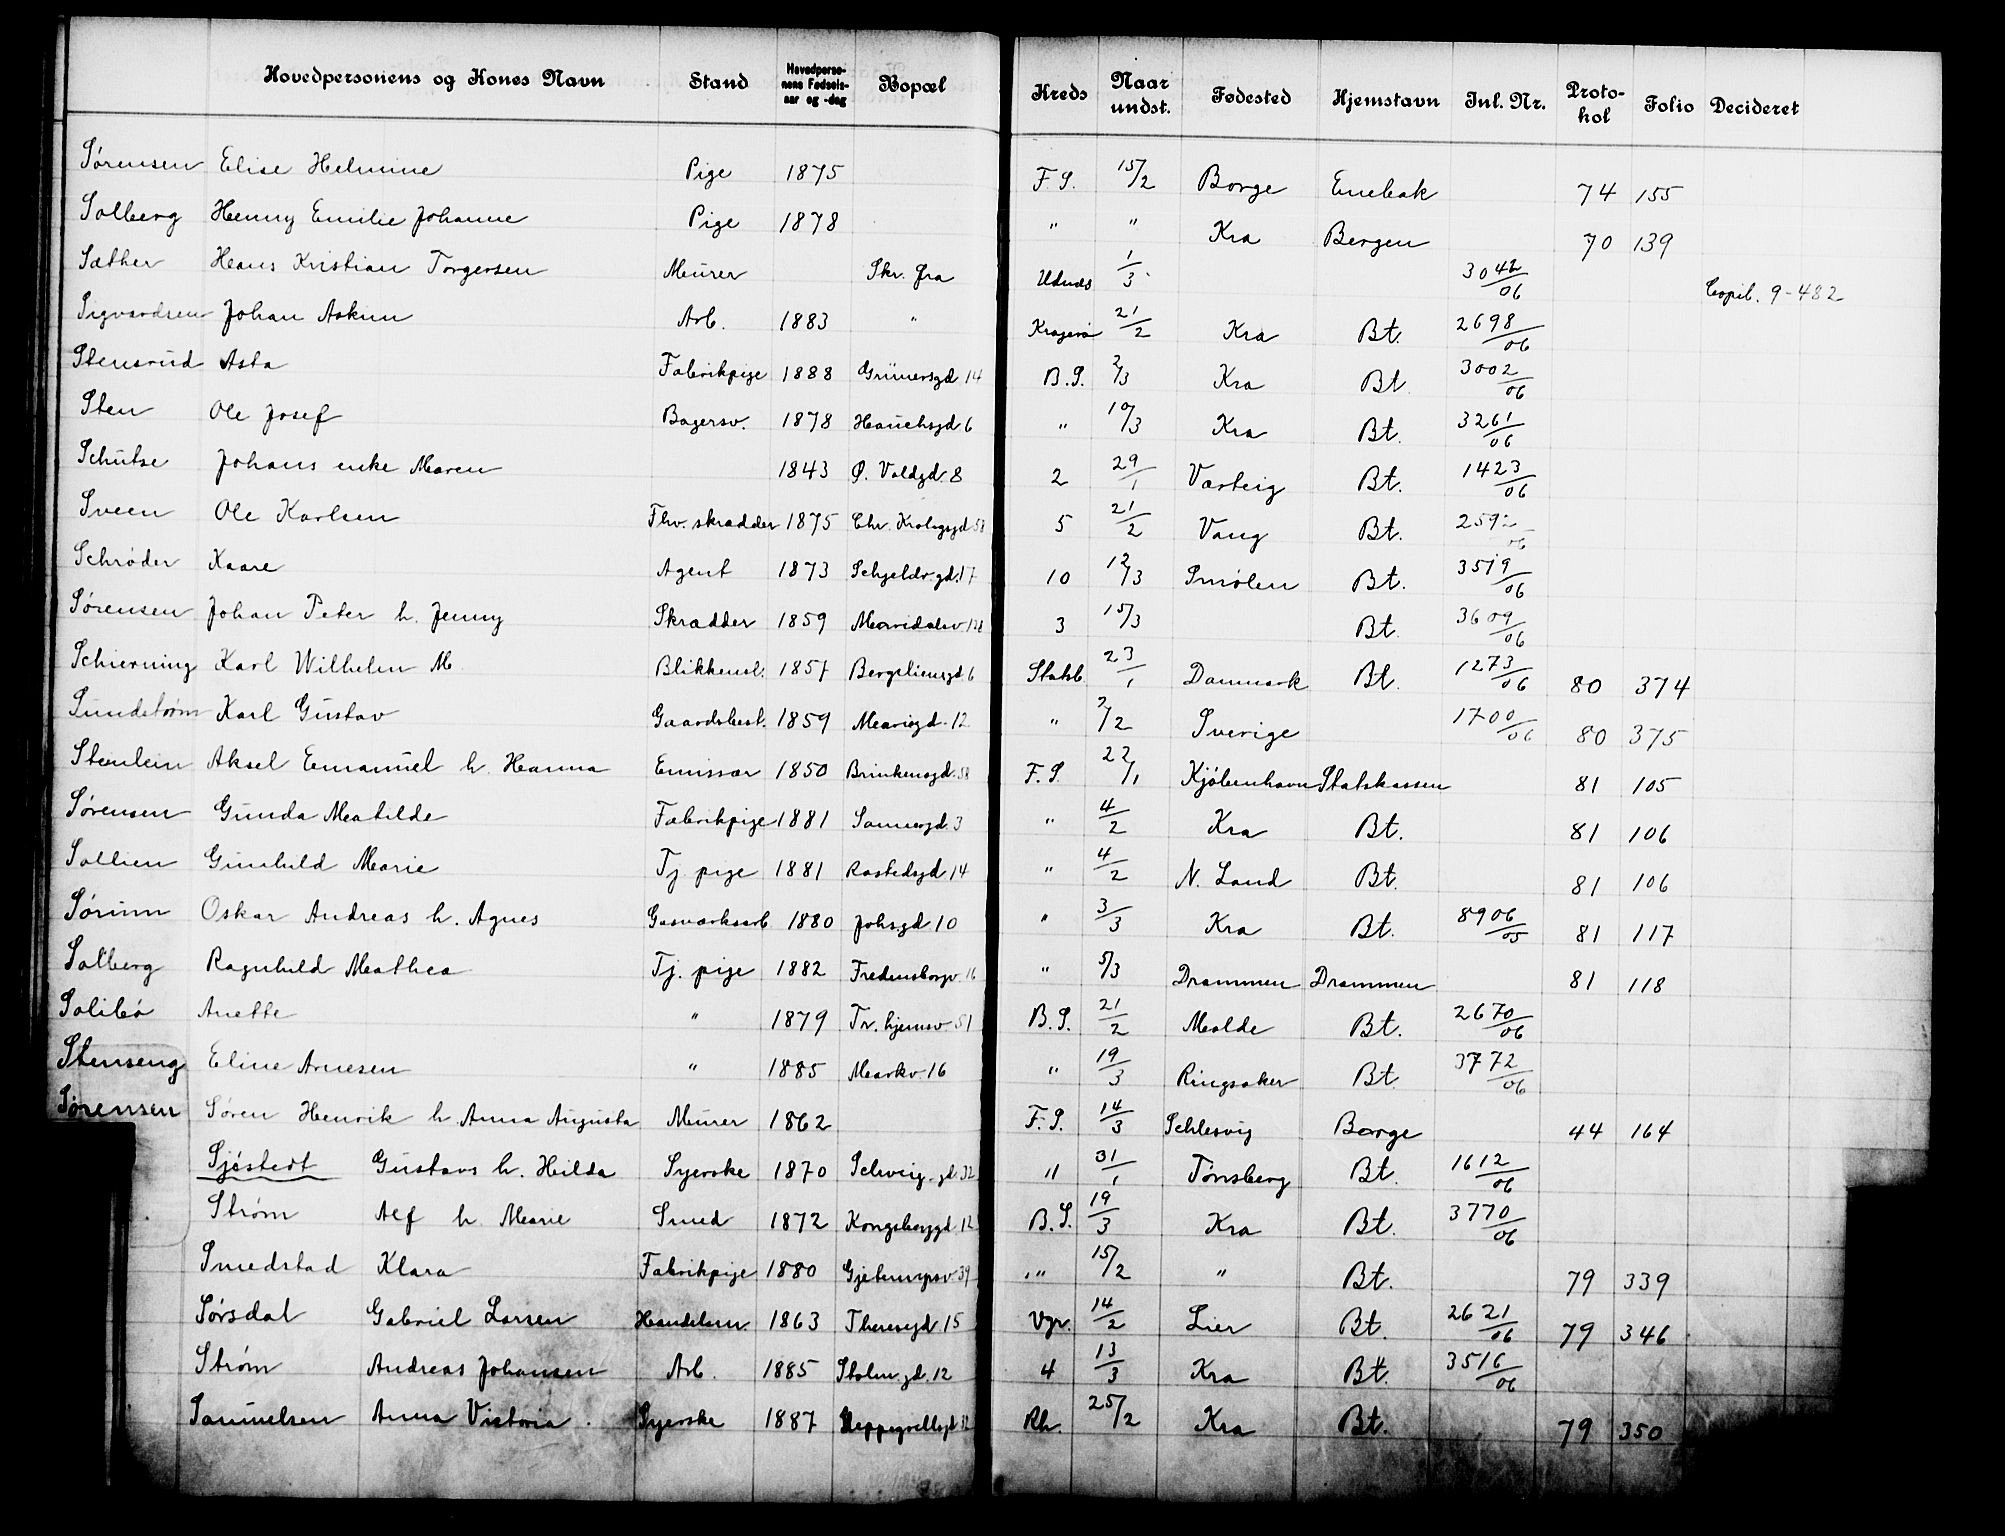 Hovedpersonens og Kones Navn Stand Hovedpersonens Fødselsaar og -dag Bopæl Kreds Naar undst. Fødested Hjemstavn Inl. Nr. Protokol Folio Decideret
Sørensen Elise Helmine Pige 1875 F.S. 15/2 Borge Enebak 74 155
Solberg Henny Emilie Johanne Pige 1878 " " Kra Bergen 70 139
Sæther Hans Kristian Torgersen Murer Skr. fra Udnæs 1/3 3042/06 Copib. 9-482
Sigvardsen Johan Askim Arb. 1883 " Kragerø 21/2 Kra Bt. 2698/06
Stensrud Asta Fabrikpige 1888 Grünersgd 14 B.S. 2/3 Kra Bt. 3002/06
Sten Ole Josef Bagersv. 1878 Hauchsgd 6 " 10/3 Kra Bt. 3261/06
Schulse Johans enke Maren 1843 Ø. Voldgd. 8 2 29/1 Varteig Bt. 1423/06
Sveen Ole Karlsen Fhv. skrædder 1875 Chr. Krohgsgd 58 5 21/2 Vang Bt. 2592/06
Schrøder Kaare Agent 1873 Schjeldr.gd. 17 10 12/3 Smølen Bt. 3519/06
Sørensen Johan Peter h. Jenny Skrædder 1859 Maridalsv. 128 3 15/3 Bt. 3609/06
Schierning Karl Wilhelm M. Blikkensl. 1857 Bergsliensgd. 6 Statsb. 23/1 Danmark Bt. 1273/06 80 374
Sundstrøm Karl Gustav Gaardsbest. 1859 Mariegd. 12 " 2/2 Sverige 1700/06 80 375
Stenlein Aksel Emanuel h. Hanna Emissær 1850 Brinkensgd. 58 F.S. 22/1 Kjøbenhavn Statskassen 81 105
Sørensen Gunda Matilde Fabrikpige 1881 Sannergd. 3 " 4/2 Kra Bt. 81 106
Sollien Gunhild Marie Tj. pige 1881 Rostedsgd 14 " 4/2 N. Land Bt. 81 106
Sørum Oskar Andreas h. Agnes Gasværksarb. 1880 Johs.gd 10 " 3/3 Kra Bt. 8906/05 81 117
Solberg Ragnhild Mathea Tj. pige 1882 Fredensborgv. 16 " 5/3 Drammen Drammen 81 118
Solibø Anette " 1879 Tr.hjemsv 51 B.S. 21/2 Molde Bt. 2670/06
Stenseng Eline Arnesen " 1885 Markv. 16 " 19/3 Ringsaker Bt 3772/06
Sørensen Søren Henrik h. Anna Augusta Murer 1862 F.S. 14/3 Schlesvig Borge 44 164
Sjøstedt Gustavs h. Hilda Syerske 1870 Schweig.gd. 32 11 31/1 Tønsberg Bt. 1612/06
Strøm Alf h. Marie Smed 1872 Kongsberggd. 12 B.S. 19/3 Kra Bt. 3770/06
Smedstad Klara Fabrikpige 1880 Gjetemyrsv 39 " 15/2 " Bt. 79 339
Sørsdal Gabriel Larsen Handelsm. 1863 Theresgd. 15 Vgr. 14/2 Lier Bt. 2621/06 79 346
Strøm Andreas Johansen Arb. 1885 Stolm.gd. 12 4 13/3 Kra Bt. 3516/06
Samuelsen Anna Victoria Syerske 1887 Steppegrellsgd 32 Rh. 25/2 Kra Bt. 79 350